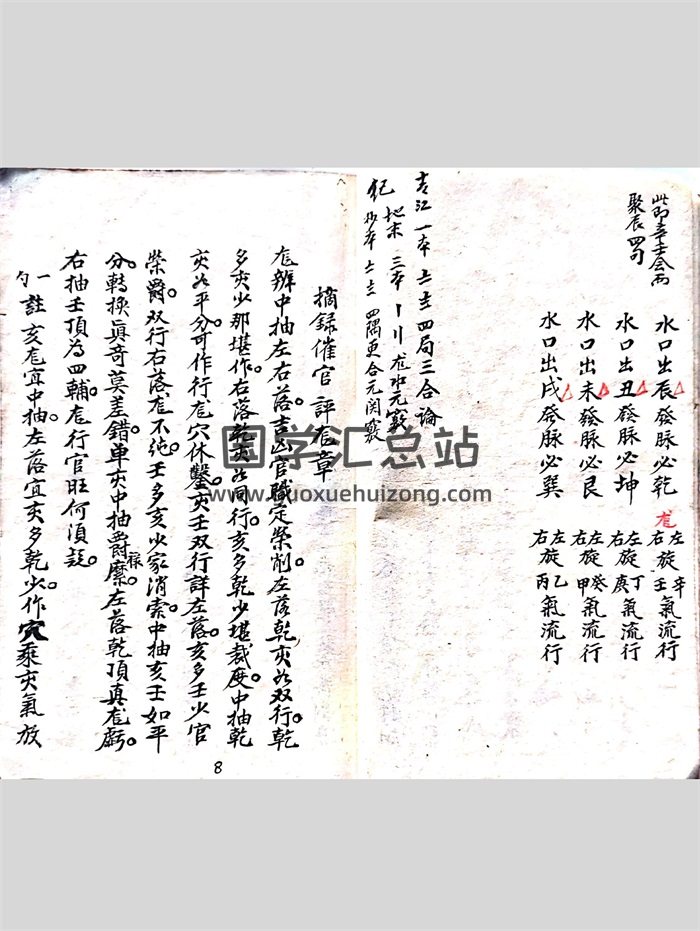 此即辛壬会而
聚辰局
水口出辰發脉必乾 龙 左旋辛 右旋壬 氣流行
水口出丑發脉必坤 左旋丁 右旋庚 氣流行
水口出未發脉必艮 左旋癸 右旋甲 氣流行
水口出戌發脉必巽 左旋乙 右旋丙 氣流行
四局三合論
一本
地末 三本
四隅更合元関竅
摘録催官評龙章
龙辨中抽左右落。吉凶官職定榮削。左落乾亥如双行。乾
多亥少那堪作。右落乾亥如同行。亥多乾少堪裁度。中抽乾
亥如平分。可作行龙穴休鑿。亥壬双行詳左落。亥多壬少官
榮爵。双行右落龙不純。壬多亥少家消索。中抽亥壬如平
分。轉換真奇莫差錯。单亥中抽爵禄縻。左落乾頂真龙虧。
右抽壬頂為四輔。龙行官旺何須疑。
一註亥龙宜中抽。左落宜亥多乾少。作穴乘亥氣放
勺
8
国学汇总站
www.guoxuehuizong.com